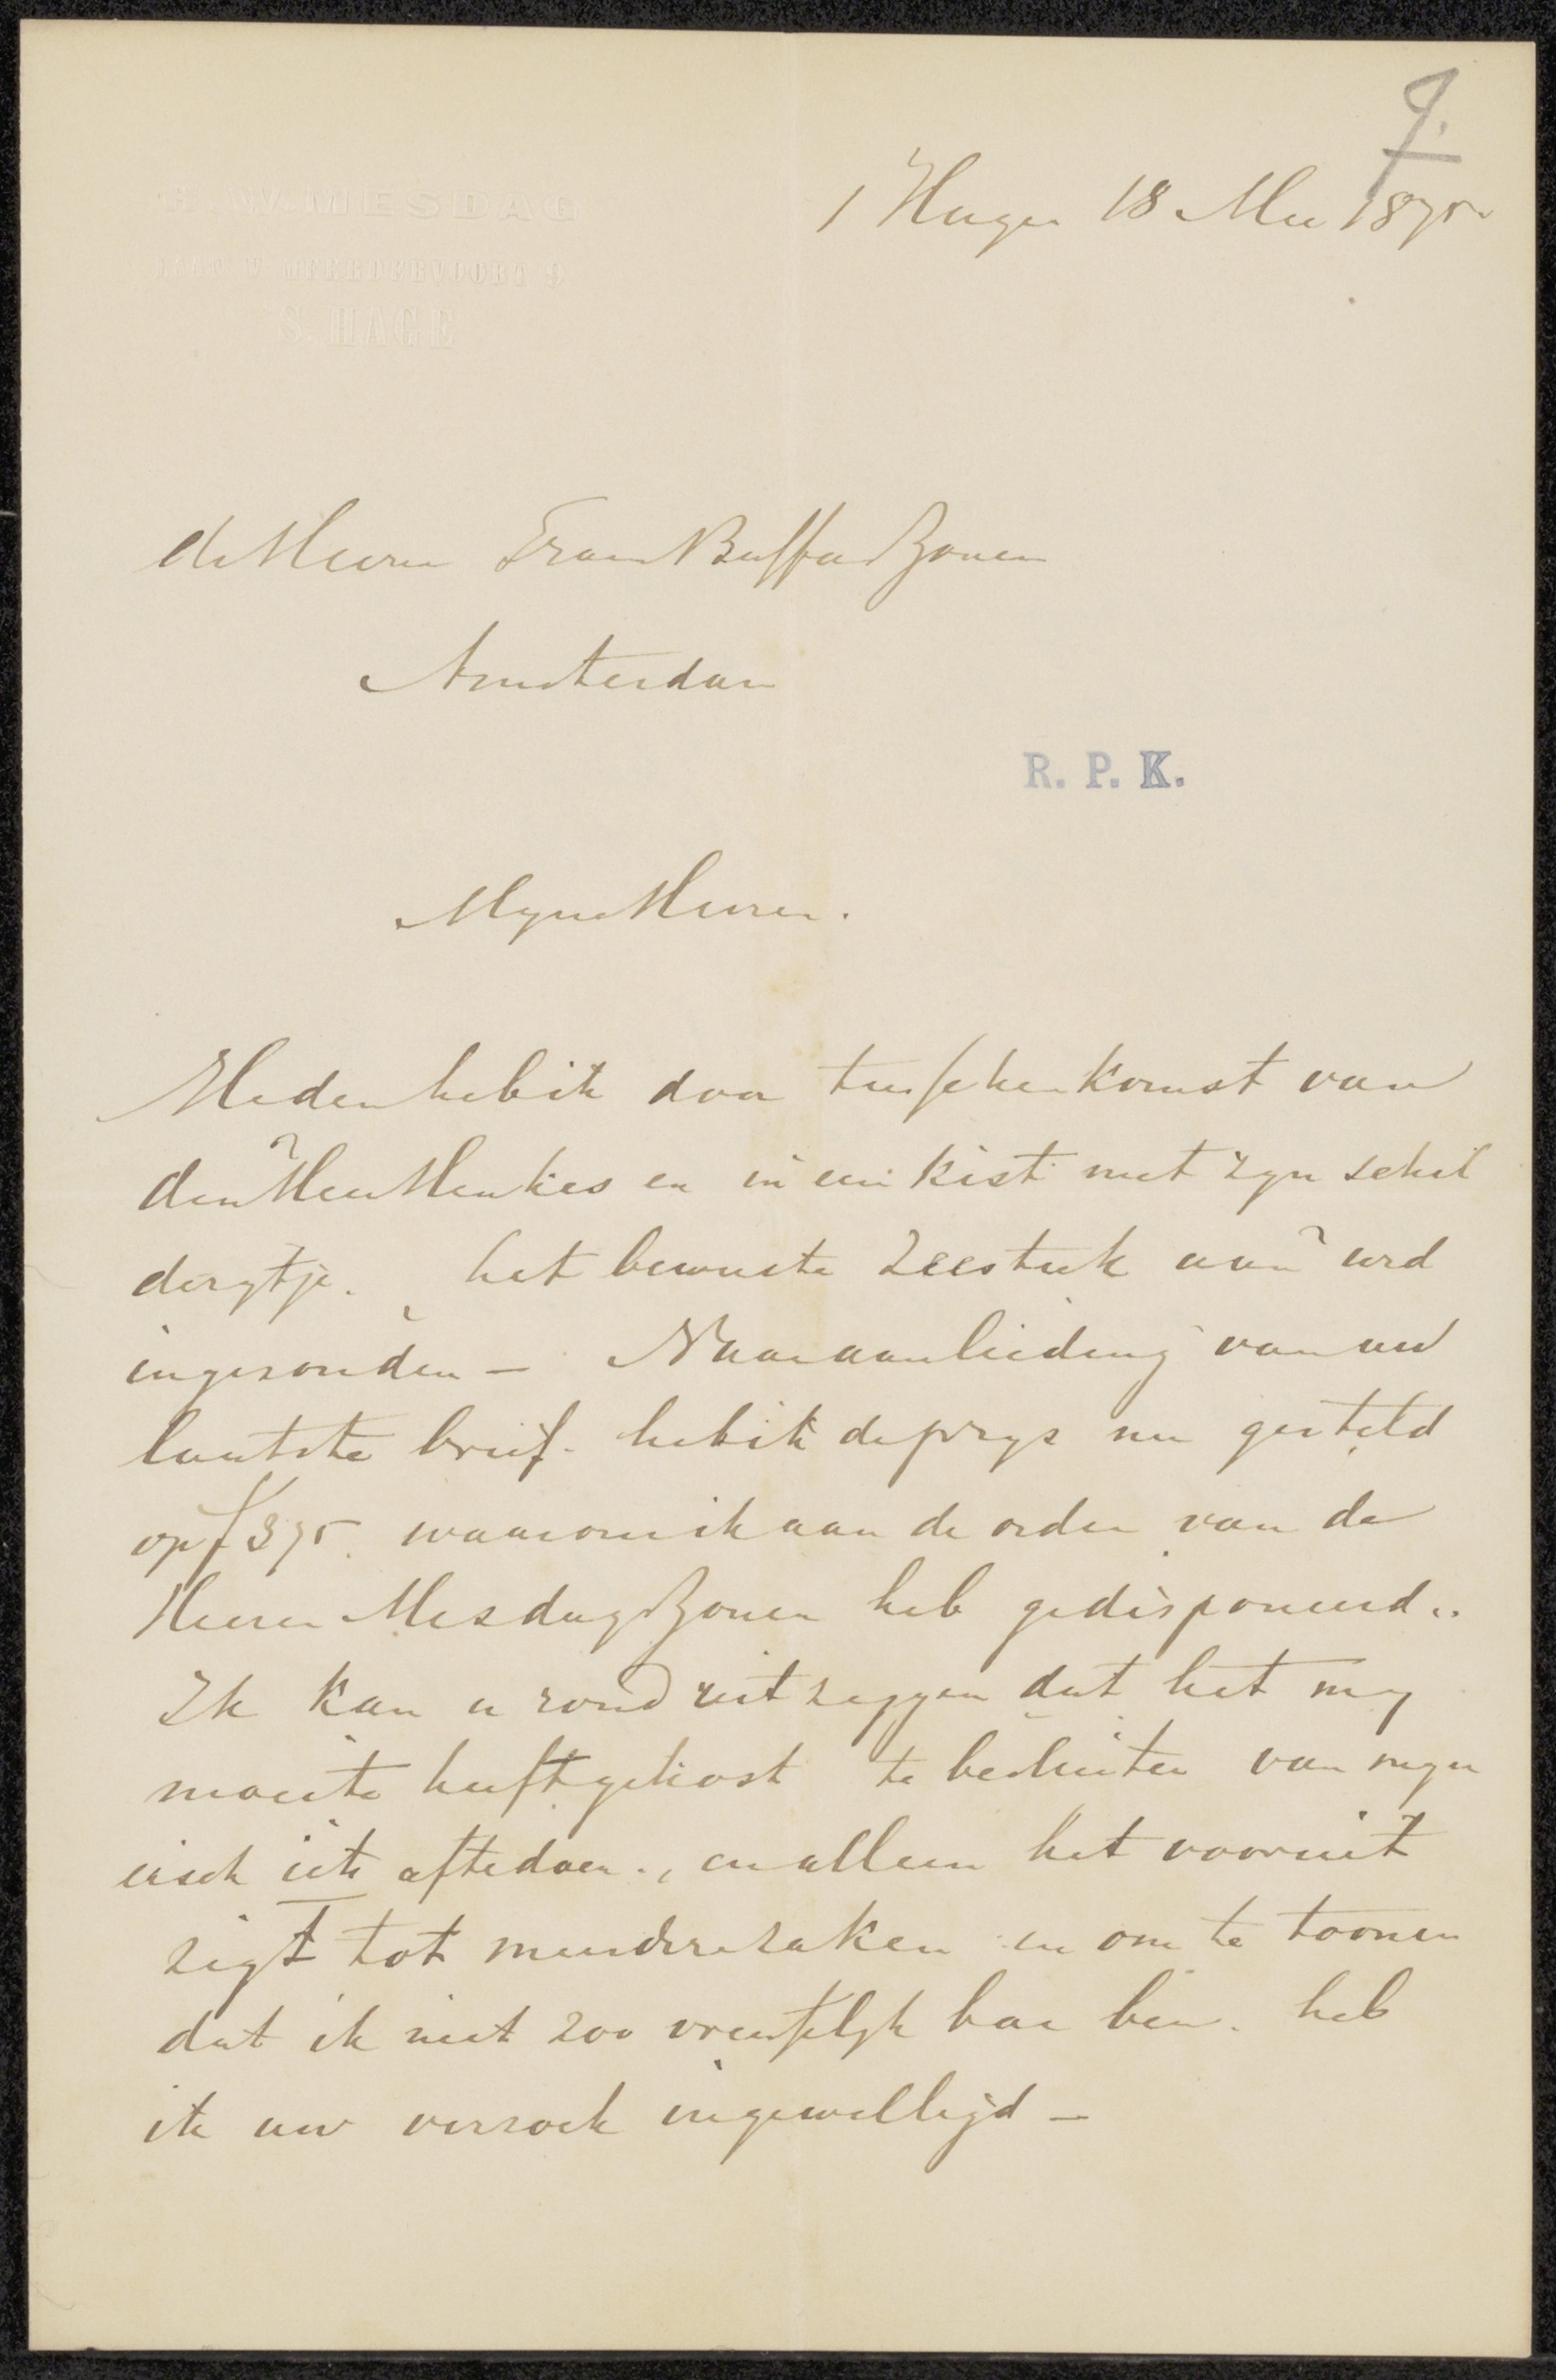 9.
H. W. MESDAG
LAAN V. MEERDERVOORT 9
S. HAGE
's Hage 18 Mei 1875
de Heeren Frans Buffa & Zonen
Amsterdam
R. P. K.
Myne Heeren.
Heden heb ik door tusschenkomst van
den Heer Henkes en in een kist met zyn schil
derytje. het bewuste zeestuk aan u
ingezonden — Naar aanleiding van uw
laatste brief. heb ik de prys nu gesteld
op f 375. waarover ik aan de order van de
Heeren Mesdag & Zonen heb gedisponeerd..
Ik kan u rond uit zeggen dat het my
moeite heeft gekost te besluiten van myn
eisch iets af te doen., en alleen het vooruit
zigt tot meerdere zaken en om te toonen
dat ik niet zoo vreesselyk ben. heb
ik uw verzoek ingewilligd —